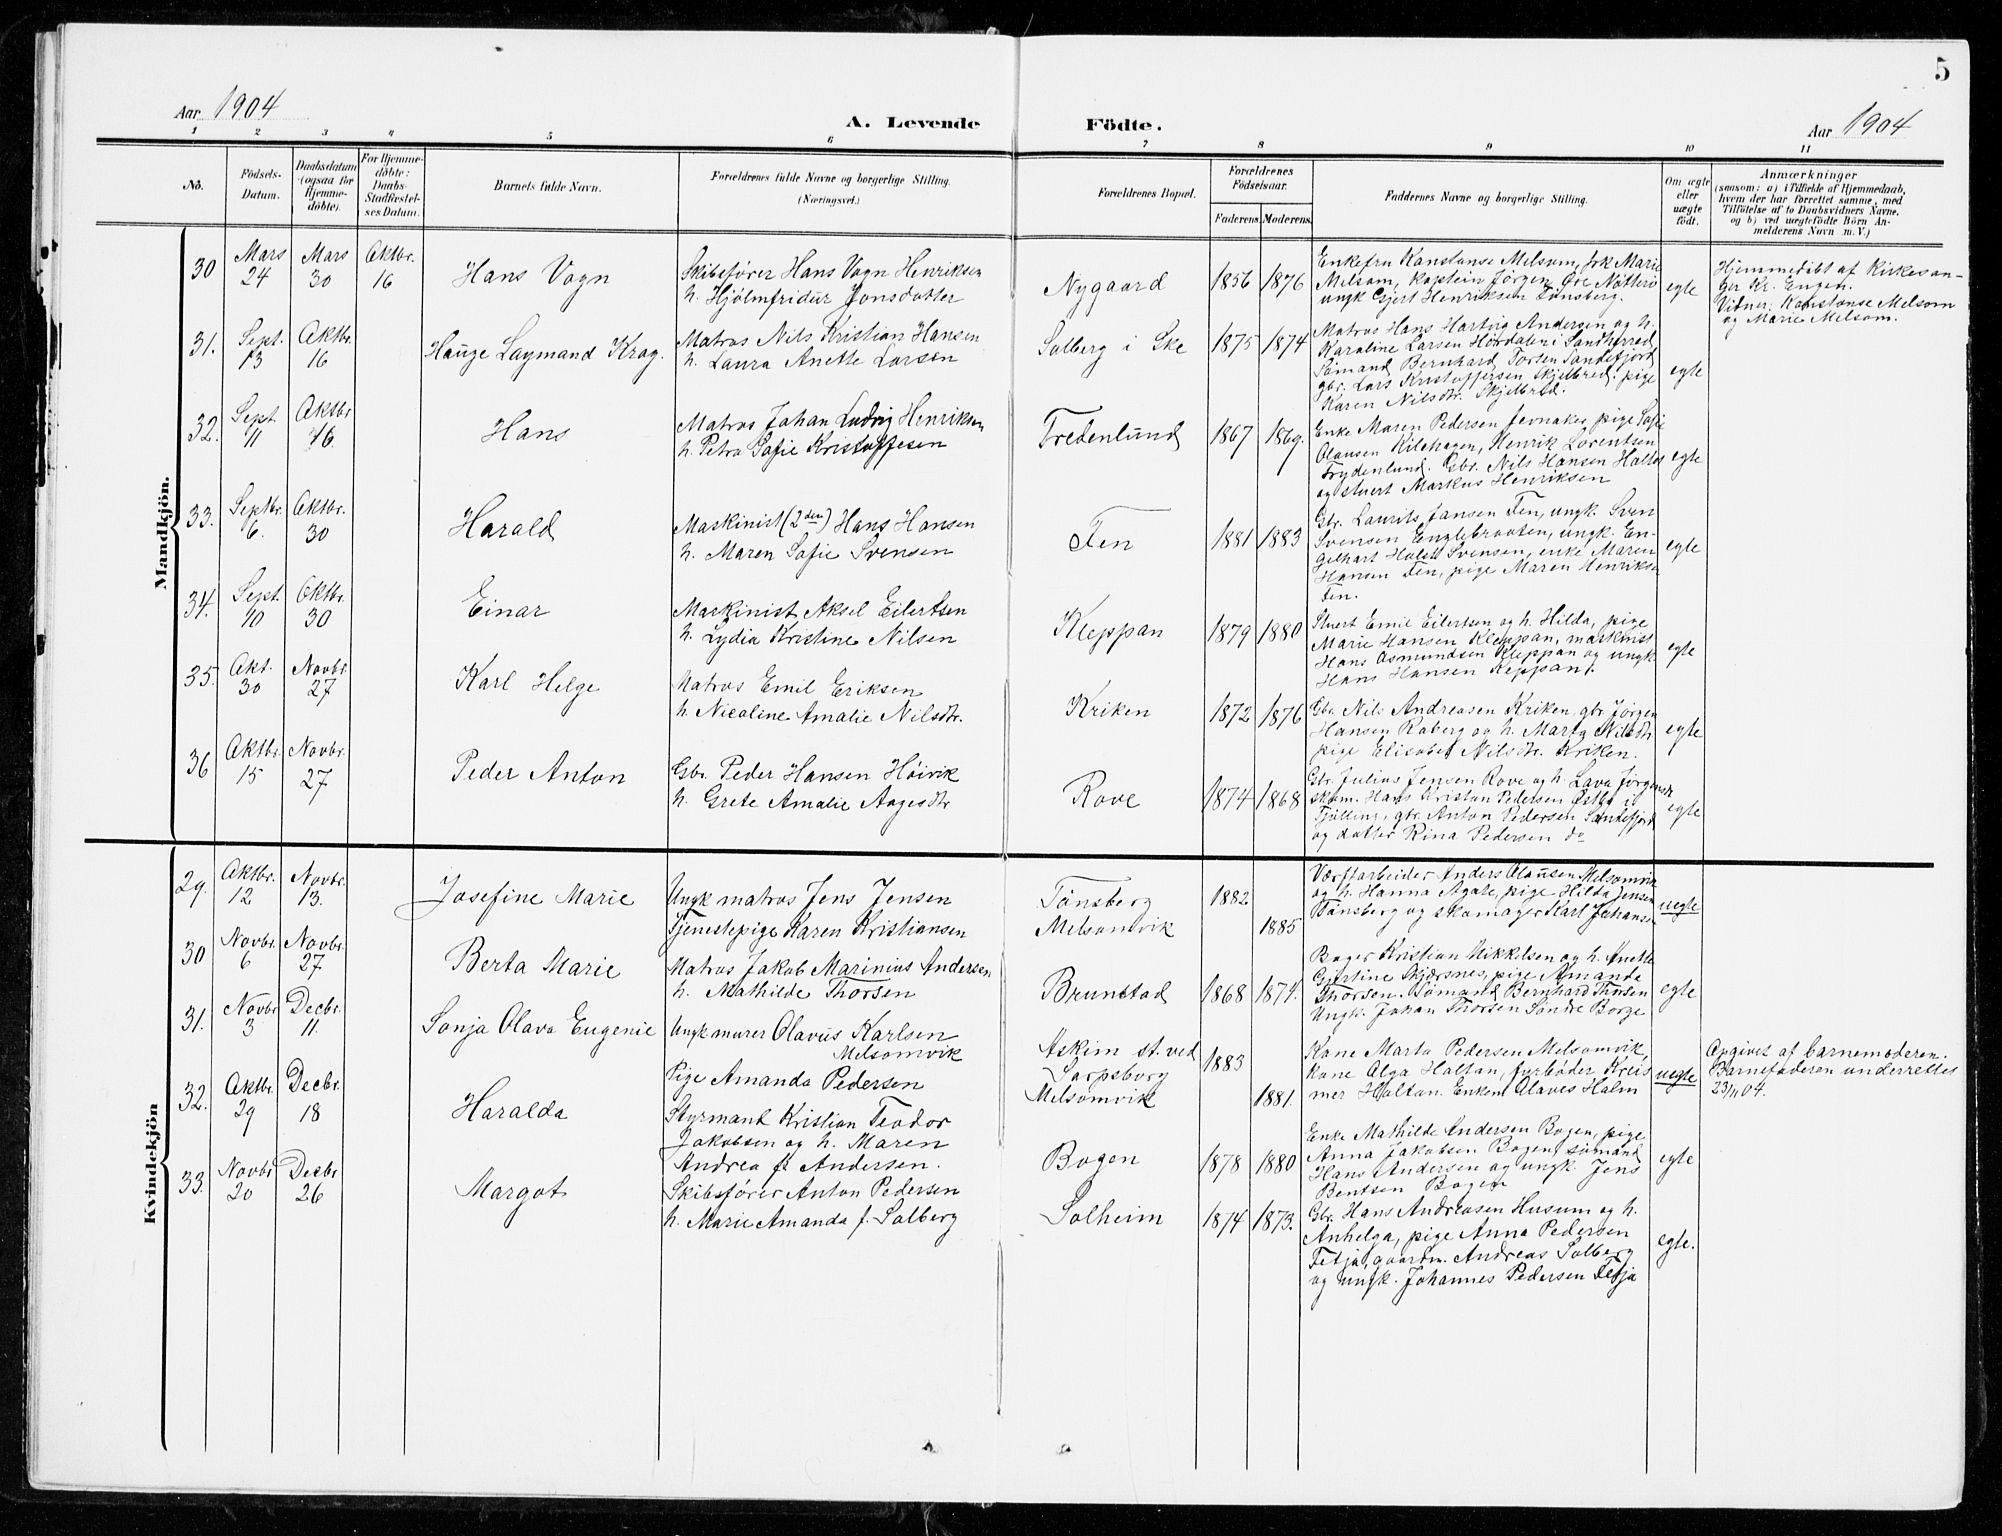 5
Aar 1904
A. Levende Födte.
Aar 1904
1 2 3 4 5 6 7 8 9 10 11
No.
Födsels-
Datum.
Daabsdatum
(ogsaa for
Hjemme-
döbte).
For Hjemme-
döbte:
Daabs-
Stadfæstel-
ses Datum.
Barnets fulde Navn.
Forældrenes fulde Navne og borgerlige Stilling.
(Næringsvei.)
Forældrenes Bopæl.
Forældrenes
Födselsaar.
Faderens. Moderens.
Faddernes Navne og borgerlige Stilling.
Om ægte
eller
uægte
födt.
Anmærkninger
(saasom: a) i Tilfælde af Hjemmedaab,
hvem der har forrettet samme, med
Tilföielse af to Daabsvidners Navne,
og b) ved uægtefödte Börn An-
melderens Navn m. V.)
Mandkjön.
30 Mars 24 Mars 30 Oktbr. 16
Hans Vagn
Skibsfører Hans Vagn Henriksen
h. Hjólmfridur Jonsdatter
Nygaard
1856 1876
Enkefru Konstanse Melsom, frk Marie
Melsom, kaptein Jørgen Øre Nötterø
ungk Gjert Henriksen Tønsberg.
egte
Hjemmedöbt af kirkesan-
ger Kr. Engen.
Vidner: Konstanse Melsom
og Marie Melsom.
31. Sept. 13 Oktbr. 16
Hauge Laymand Krag.
Matros Nils Kristian Hansen
h. Laura Anette Larsen
Solberg i Ske
1875 1874
Matros Hans Hartvig Andersen og h.
Karaline Larsen Hørdalen i Sandherred
Sömand Bernhard Torsen Sandefjord
gbr. Lars Kristoffersen Skjelbred. pige
Karen Nilsdtr. Skjelbred.
egte
32. Sept 11 Oktbr 16.
Hans
Matros Johan Ludvig Henriksen
h. Petra Sofie Kristoffesen
Fredenlund
1867 1869.
Enke Maren Pedersen Jernakes, pige Sofie
Olausen Kilehagen, Henrik Lorentsen
Frydenlund. Gbr. Nils Hansen Holtet
og stuert Markus Henriksen
egte
33. Septbr. 6. Oktbr. 30
Harald
Maskinist (2den) Hans Hansen
h. Maren Sofie Svensen
Fen
1881 1883
Gbr. Laurits Jansen Fen, ungk. Sven
Svensen Englebraaten, ungk. En-
gelhart Holst Svensen, enke Maren
Hansen Fen, pige Maren Henriksen
Fen.
egte
34. Sept. 10 Oktbr. 30
Einar
Maskinist Aksel Eilertsen
h. Lydia Kristine Nilsen
Kleppan
1879 1880
Stuert Emil Eilertsen og h. Hilda, pige
Marie Hansen Kleppan, maskinist
Hans Asmundsen Kleppan og ungk
Hans Hansen Keppan.
egte
35. Okt. 30 Novbr. 27
Karl Helge
Matros Emil Eriksen
h. Nicoline Amalie Nilsdtr.
Kriken
1872 1876
Gbr. Nils Andreasen Kriken, gbr Jørgen
Hansen Raberg og h. Marta Nilsdtr.
pige Elisabet Nilsdtr. Kriken.
egte
36 Oktbr. 15 Novbr. 27
Peder Anton
Gbr. Peder Hansen Höivik
h. Grete Amalie Aagesdtr
Rove
1874 1868
Gbr. Julius Jensen Rove og h. Lava Jørgensen
skom. Hans Kristan Pedersen Østby i
Tjölling, gbr. Anton Pedersen Sandefjord
og datter Rina Pedersen do
egte
Kvindekjön
29. Oktbr. 12 Novbr. 13.
Josefine Marie
Ungk matros Jens Jensen
Tjenestepige Karen Kristiansen
Tønsberg
Melsomvik
1882
1885
Værftarbeider Anders Olausen Melsomvik
og h. Hanna Agate, pige Hilda Jensen
Tønsberg og skomager Karl Johansen
uegte
30 Novbr. 6 Novbr. 27
Berta Marie
Matros Jakob Marinius Andersen
h. Mathilde Thorsen
Brunstad
1868 1874.
Bager Kristian Mikkelsen og h. Anette
Gjertine Skjærsnes, pige Amanda
Thorsen. Sømand Bernhard Timsen
Ungk. Johan Thorsen Söndre Borge
egte
31. Novbr 3 Decbr. 11
Sonja Olava Eugenie
Ungk murer Olavus Karlsen
Melsomvik
Pige Amanda Pedersen
Askim st. ved
Sarpsborg
Melsomvik
1883
1881.
Kone Marta Pedersen Melsomvik,
kone Olga Holtan, fyrbøder Kreis
mer Holtan. Enkem. Olaves Halm
uegte
Opgivet af barnemoderen.
Barnefaderen underrettet
23/11 04.
32. Oktbr 29 Decbr. 18
Haralda
Styrmand Kristian Teodor
Jakobsen og h. Maren
Andrea f. Andersen.
Bogen
1878 1880
Enke Mathilde Andersen Bogen, pige
Anna Jakobsen Bogen, sömand
Hans Andersen og ungk. Jens
Bentsen Bogen
egte
33. Novbr 20 Decbr 26
Margot
Skibsfører Anton Pedersen
h. Marie Amanda f. Solberg
Solheim
1874 1873.
Gbr. Hans Andreasen Husum og h.
Anhelga, pige Anna Pedersen
Fetja, gaardm. Andreas Solberg
og ungk. Johannes Pedersen Fetja
egte.